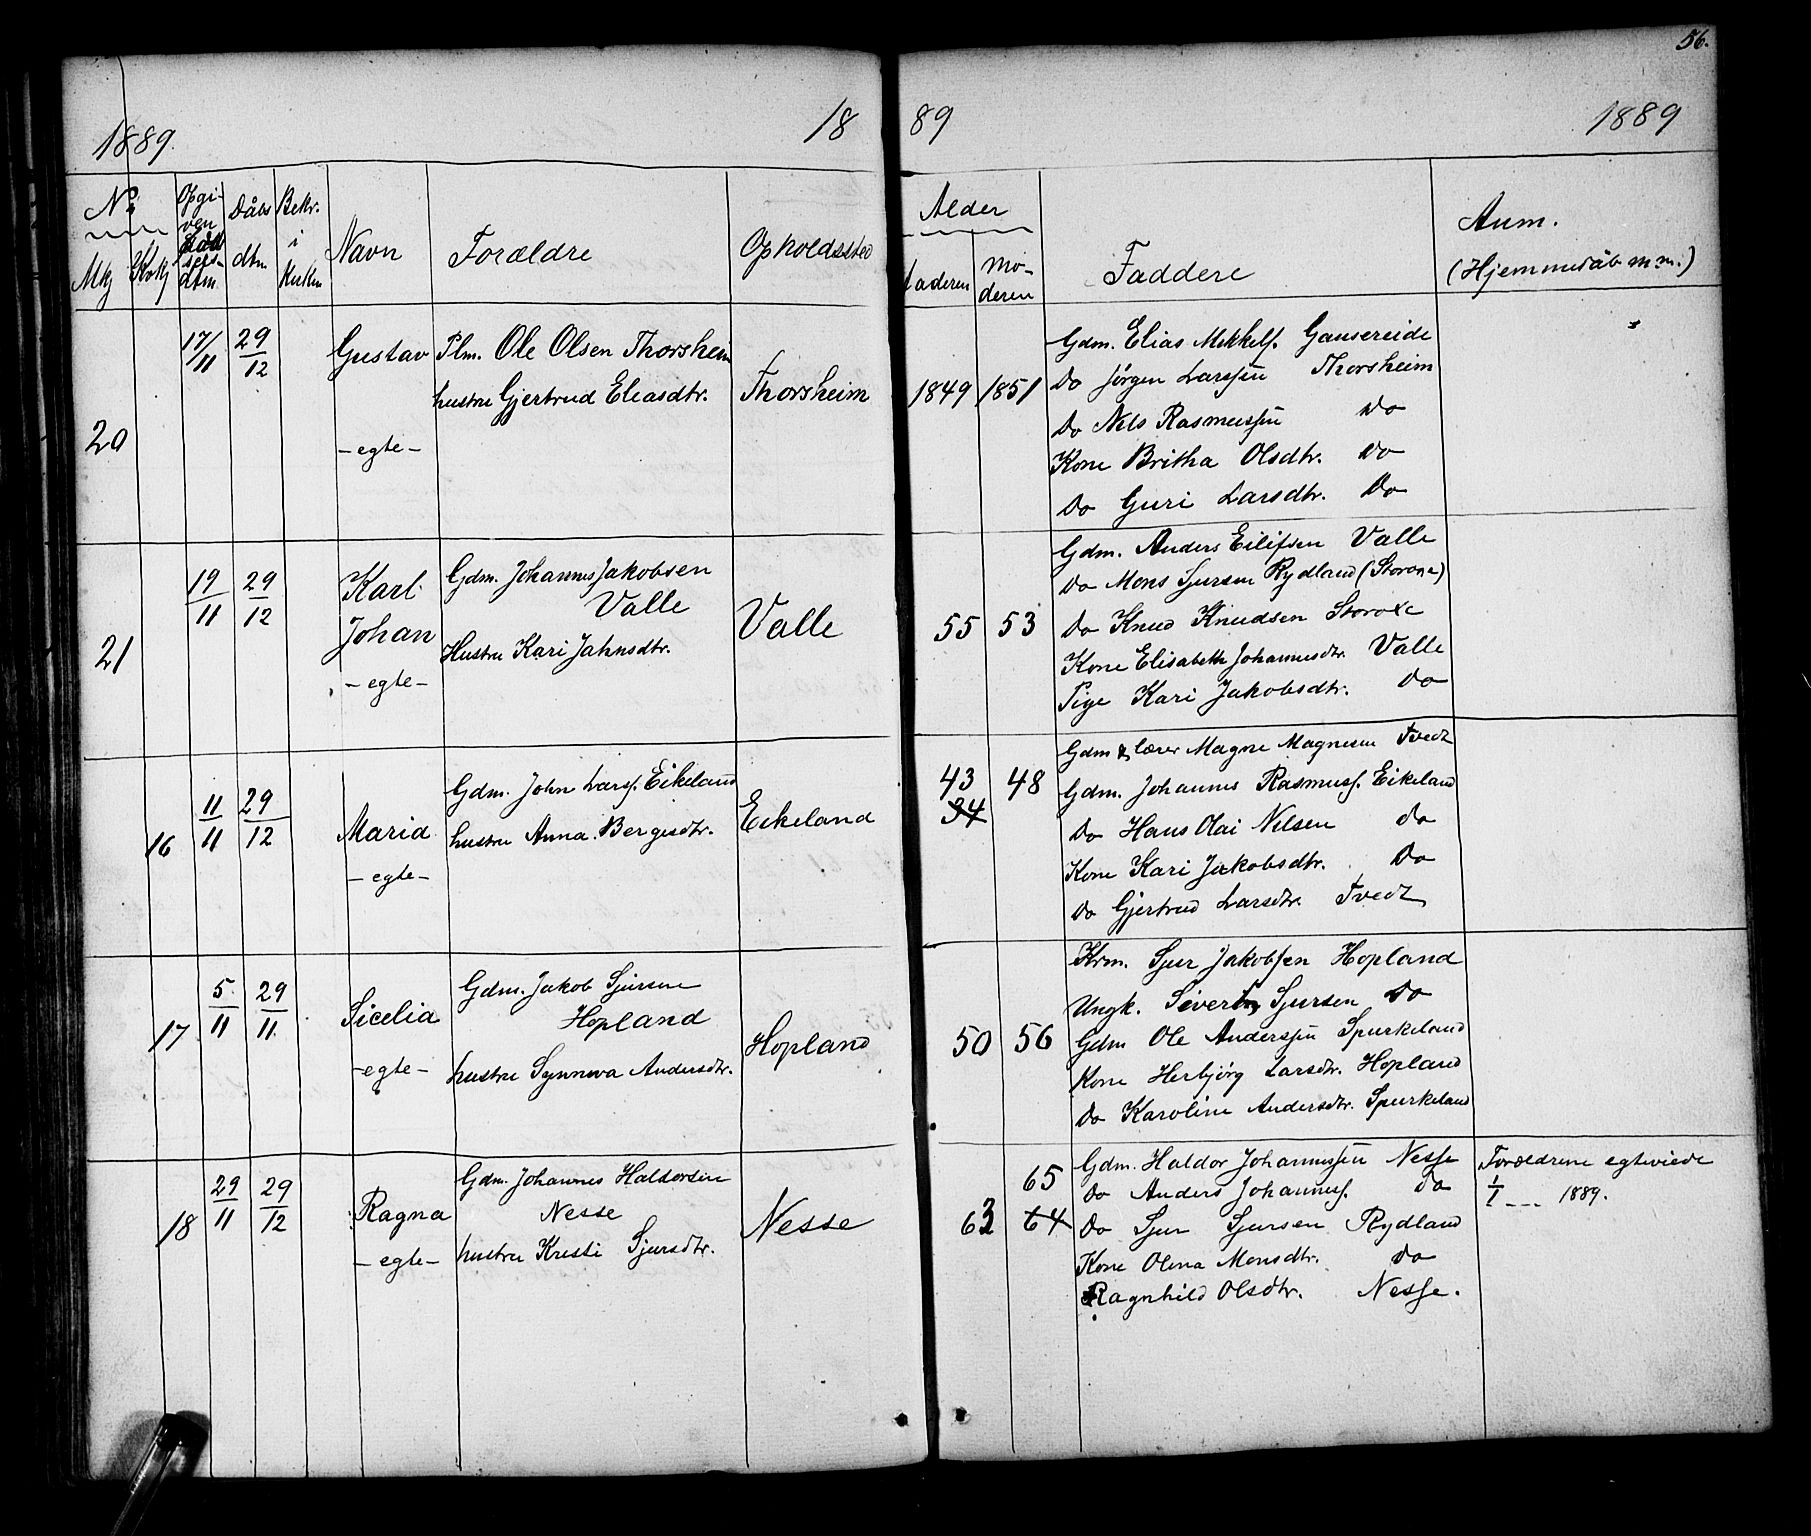 56.
1889. 18 89 1889
No
Mkj Kvkj
Opgi-
ven
Fød
sels-
dtm.
Dåbs
dtm
Bekr.
i
Kirken
Navn
Forældre
Opholdssted
Alder
faderen
mo-
deren
Faddere
Anm.
(Hjemmedåb m.m.)
20
17/11
29/12
Gustav
-egte-
Plm. Ole Olsen Thorsheim
hustru Gjertrud Eliasdtr.
Thorsheim
1849 1851
Gdm. Elias Mikkels. Gausereide
Do Jørgen Larssen Thorsheim
Do Nils Rasmussen Do
Kone Britha Olsdtr. Do
Do Guri Larsdtr. Do
21
19/11
29/12
Karl
Johan
-egte-
Gdm. Johannes Jakobsen
Valle
Hustru Kari Jahnsdtr.
Valle
55 53
Gdm. Anders Eilifsen Valle
Do Mons Sjursen Rydland (Storoxe)
Do Knud Knudsen Storoxe
Kone Elisabeth Johannesdtr. Valle
Pige Kari Jakobsdtr. Do
16
11/11
29/12
Maria
-egte-
Gdm. John Larss. Eikeland
hustru Anna Bergesdtr.
Eikeland
43 48
34
Gdm & lærer Magne Magnesen Tvedt
Gdm. Johannes Rasmuss. Eikeland
Do Hans Olai Nilsen Do
Kone Kari Jakobsdtr. Do
Do Gjertrud Larsdtr. Tvedt
17
5/11
29/11
Sicelia
-egte-
Gdm. Jakob Sjursen
Hopland
hustru Synneva Andersdtr.
Hopland
50 56
Krm. Sjur Jakobsen Hopland
Ungk. Sivert Sjursen Do
Gdm Ole Anderssen Spurkeland
Kone Herbjørg Larsdtr. Hopland
Do Karoline Andersdtr. Spurkeland
18
29/11
29/12
Ragna
-egte-
Gdm. Johannes Haldorsen
Nesse
hustru Kristi Sjursdtr.
Nesse
65
63 64
Gdm. Haldor Johannessen Nesse
Do Anders Johanness. Do
Do Sjur Sjursen Rydland
Kone Olina Monsdtr. Do
Ragnhild Olsdtr. Nesse.
Forældrene egteviede
1/1 --- 1889.